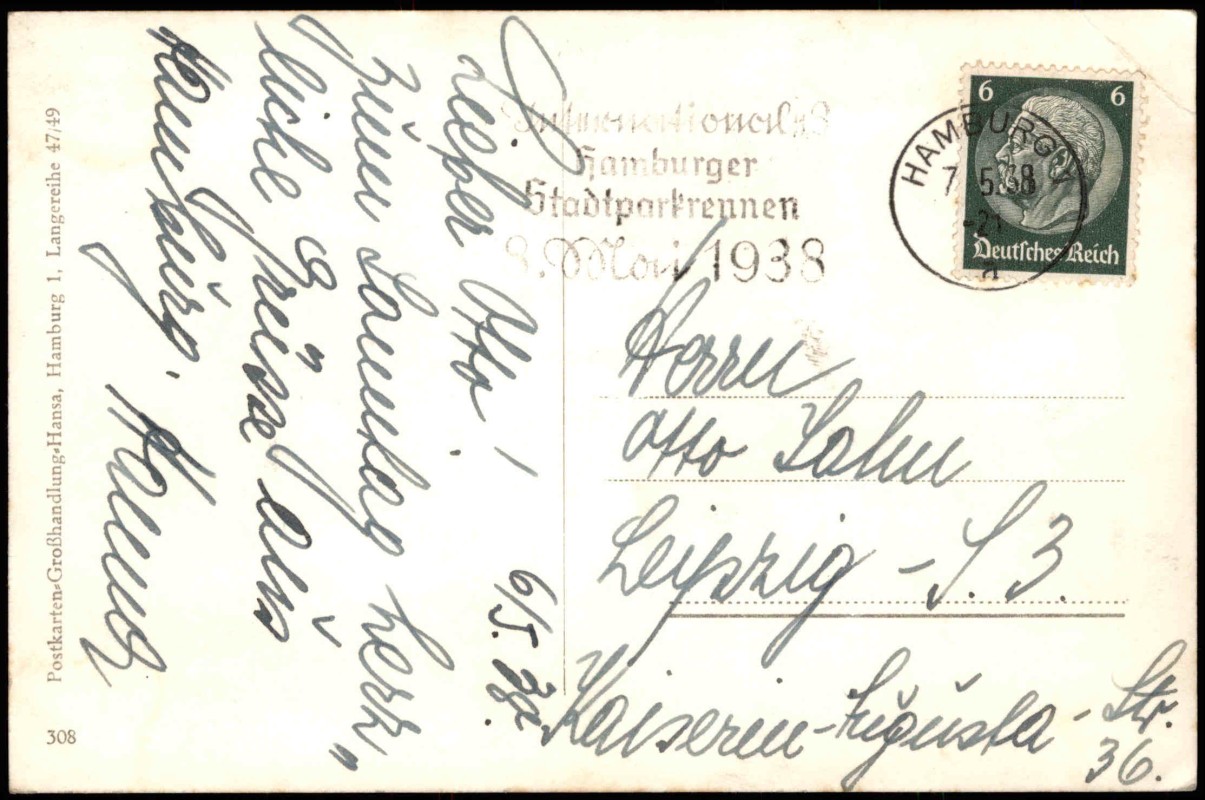 6/5. 38.
Lieber Otto!
Zum Sonntag herz„
liche Grüsse aus
Hamburg.
Internationales
Hamburger
Stadtparkrennen
8. Mai 1938
HAMBURG 1
7.5.38
-21
a
6 6
Deutsches Reich
Herrn
Otto Sahm
Leipzig - S. 3.
Kaiserin-Augusta-Str.
36.
Postkarten-Großhandlung-Hansa, Hamburg 1, Langereihe 47/49
308